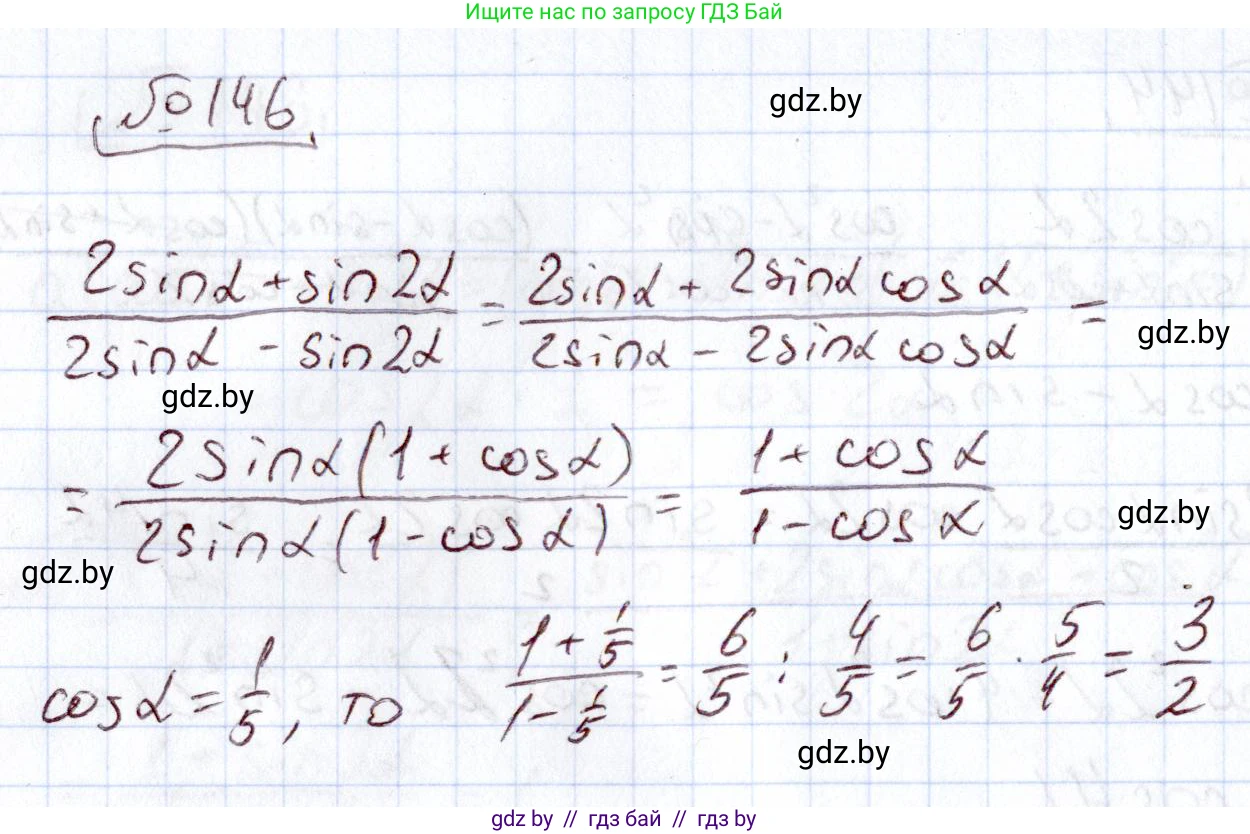 Ищите нас по запросу ГДЗ Бай
№146
gdz.by
(2sinα+sin2α)/(2sinα - sin2α) = (2sinα + 2sinα cosα)/(2sinα - 2sinα cosα) =
gdz.by
gdz.by
= (2sinα(1 + cosα))/(2sinα(1 - cosα)) = (1 + cosα)/(1 - cosα)
gdz.by
gdz.by
cosα = 1/5, то (1 + 1/5)/(1 - 1/5) = 6/5 : 4/5 = 6/5 · 5/4 = 3/2
gdz.by
gdz.by // гдз бай // гдз by